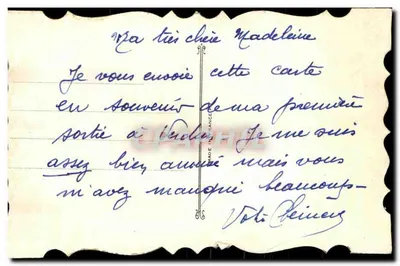 Ma très chère Madeleine
Je vous envoie cette carte
en souvenir de ma première
sortie à Je me suis
assez bien amusé mais vous
m'avez manqué beaucoup